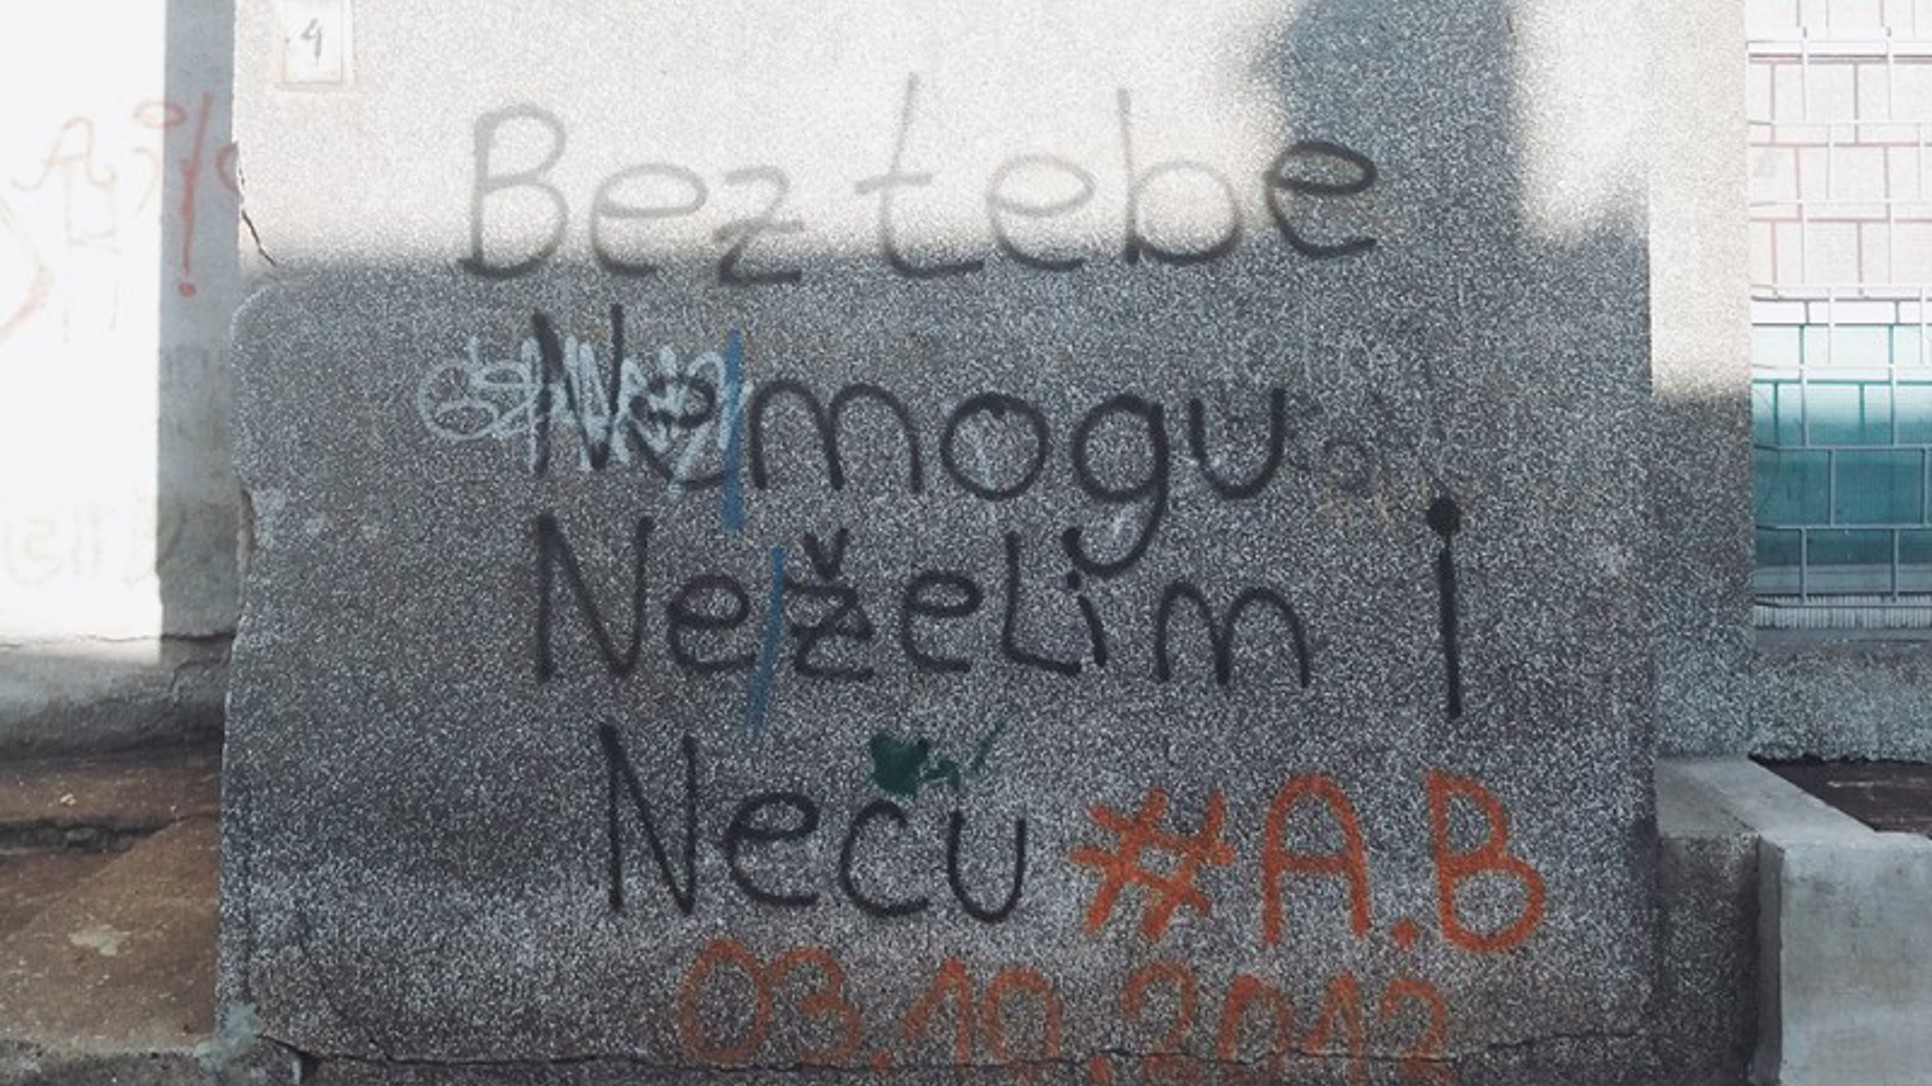 4
Bez tebe
Ne mogu
Ne želim i
Neću #A.B
03.10.2012